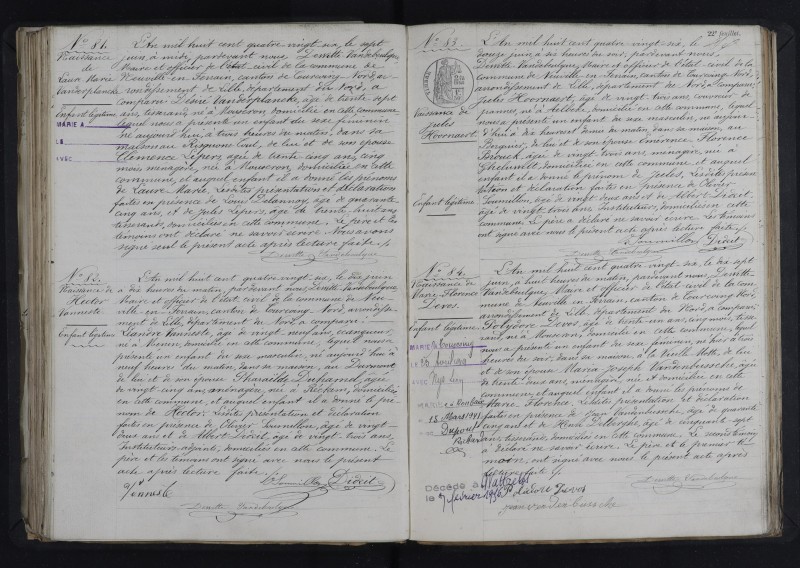 N° 81.
Naissance
de
Laure Marie
Vandesplancke
Enfant légitime
MARIE A
LE
AVEC
L'An mil huit cent quatre vingt-six, le sept
juin, à midi, pardevant nous, Demette Vandebulque,
Maire et officier de l'état civil de la commune de
Neuville en Ferrain, canton de Tourcoing Nord, ar-
rondissement de Lille, département du Nord, a
comparu Désiré Vandesplancke, âgé de trente sept
ans, tisserand, né à Mouscron, domicilié en cette commune
lequel nous a présenté un enfant du sexe féminin
né aujourd'hui, à trois heures du matin, dans sa
maison au Risquons Tout, de lui et de son épouse
Clémence Lepers, âgée de trente cinq ans, cinq
mois, ménagère, née à Mouscron, domiciliée en cette
commune, et auquel enfant il a donné les prénoms
de Laure Marie. Lesdites présentation et déclaration
faites en présence de Louis Delannoy, âgé de quarante
cinq ans, et de Jules Lepers, âgé de trente huit ans
tisserands, domiciliés en cette commune. Le père et les
témoins ont déclaré ne savoir écrire. Nous avons
signé seul le présent acte après lecture faite.
Demette Vandebulque
N° 82.
Naissance de
Hector
Vanneste
Enfant légitime
L'An mil huit cent quatre vingt-six, le dix juin
à dix heures du matin, pardevant nous, Demette Vandebulque
Maire et officier de l'état civil de la commune de Neu-
ville en Ferrain, canton de Tourcoing Nord, arrondisse-
ment de Lille, département du Nord, a comparu
Vanneste, âgé de vingt-neuf ans,
né à Menen, domicilié en cette commune, lequel nous a
présenté un enfant du sexe masculin, né aujourd'hui à
neuf heures du matin, dans sa maison, au
de lui et de son épouse Pharaïlde Duhamel, âgée
de vingt cinq ans, ménagère, née à Reckem, domiciliée
en cette commune, et auquel enfant il a donné le pré-
nom de Hector. Lesdites présentation et déclaration
faites en présence de Olivier Tournillon, âgé de vingt-
deux ans et de Albert Divet, âgé de vingt trois ans,
instituteurs adjoints, domiciliés en cette commune. Le
père et les témoins ont signé avec nous le présent
acte après lecture faite.
Divet
Demette Vandebulque
22e feuillet.
N° 83.
Naissance de
Jules
Hoornaert
Enfant légitime
L'An mil huit cent quatre vingt-six, le
douze juin à six heures du soir, pardevant nous,
Demette Vandebulque, Maire et officier de l'état civil de la
commune de Neuville en Ferrain, canton de Tourcoing Nord,
arrondissement de Lille, département du Nord, a comparu
Jules Hoornaert, âgé de vingt ans, couvreur de
né à domicilié en cette commune, lequel
nous a présenté un enfant du sexe masculin, né aujour-
d'hui à dix heures et demie du matin, dans sa maison, au
de lui et de son épouse Florence
âgée de vingt trois ans, ménagère, née à
domiciliée en cette commune et auquel
enfant il a donné le prénom de Jules. Lesdites présen-
tation et déclaration faites en présence de Olivier
Tournillon, âgé de vingt deux ans et de Albert Divet,
âgé de vingt trois ans, instituteurs, domiciliés en cette
commune. Le père a déclaré ne savoir écrire. Les témoins
ont signé avec nous le présent acte après lecture faite.
Divet
Demette Vandebulque
N° 84.
Naissance de
Marie Florence
Devos.
Enfant légitime
MARIE à Tourcoing
LE
AVEC
15 Mars 1941
Dupont
L'An mil huit cent quatre vingt-six, le dix sept
juin, à huit heures du matin, pardevant nous, Demette
Vandebulque, Maire et officier de l'état civil de la com-
mune de Neuville en Ferrain, canton de Tourcoing Nord,
arrondissement de Lille, département du Nord, a comparu
Polydore Devos, âgé de trente un ans, cinq mois, tisse-
rand, né à Mouscron, domicilié en cette commune, lequel
nous a présenté un enfant du sexe féminin, né hier à trois
heures du soir, dans sa maison, à la Vieille Motte, de lui
et de son épouse Maria Joseph Vandenbussche, âgée
de trente deux ans, ménagère, née et domiciliée en cette
commune, et auquel enfant il a donné les prénoms de
Marie Florence. Lesdites présentation et déclaration
faites en présence de Jean Vandenbussche, âgé de quarante
cinq ans et de Henri âgé de cinquante sept
ans, tisserands, domiciliés en cette commune. Le second témoin
a déclaré ne savoir écrire. Le père et le premier té-
moin, ont signé avec nous le présent acte après
lecture faite.
Décédé à
le février 1956
Polidore Devos
Demette Vandebulque
Jean van den Bussche